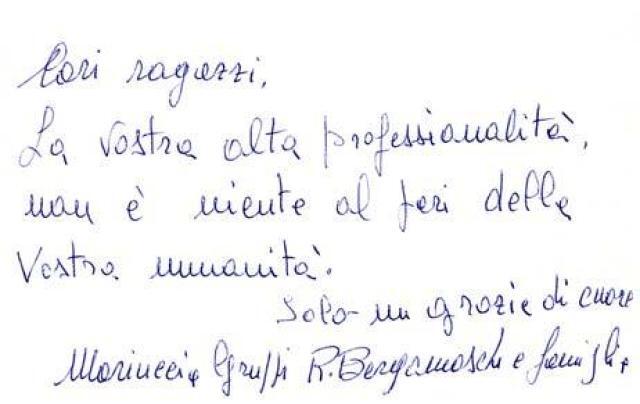 Cari ragazzi,
La vostra alta professionalità,
non è niente al pari della
Vostra umanità.
Solo un grazie di cuore
Mariuccia R. Bergamaschi e famiglia